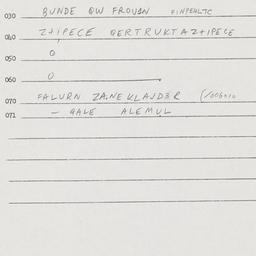 030 BUNDE OW FROVEN FINPEHLTC
040 Z+IPECE QERTRUKTAZ+IPECE
050 0
060 0
070 FALURN ZANEKLAJDER
071 — GALE ALEMUL